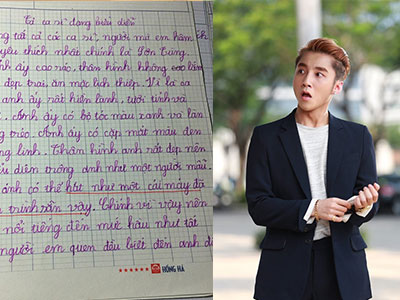 "Tả ca sĩ" đang biểu diễn
tất cả các ca sĩ, người mà em hâm
yêu thích nhất chính là Tôn Tùng.
ấy cao ráo, thân hình không
đẹp trai, ăn mặc lịch thiệp. Vì là ca
anh ấy rất hiền lành, tươi tỉnh và
Anh ấy có bộ tóc màu xanh và làn
trẻo. Anh ấy có cặp mắt màu đen
linh. Thân hình anh rất đẹp nên
diễn trông anh như một người mẫu.
anh có thể hát như một cái máy đã
trình sẵn vậy. Chính vì vậy nên
nổi tiếng đến mức hầu như tất
người em quen đều biết đến anh
HỒNG HÀ